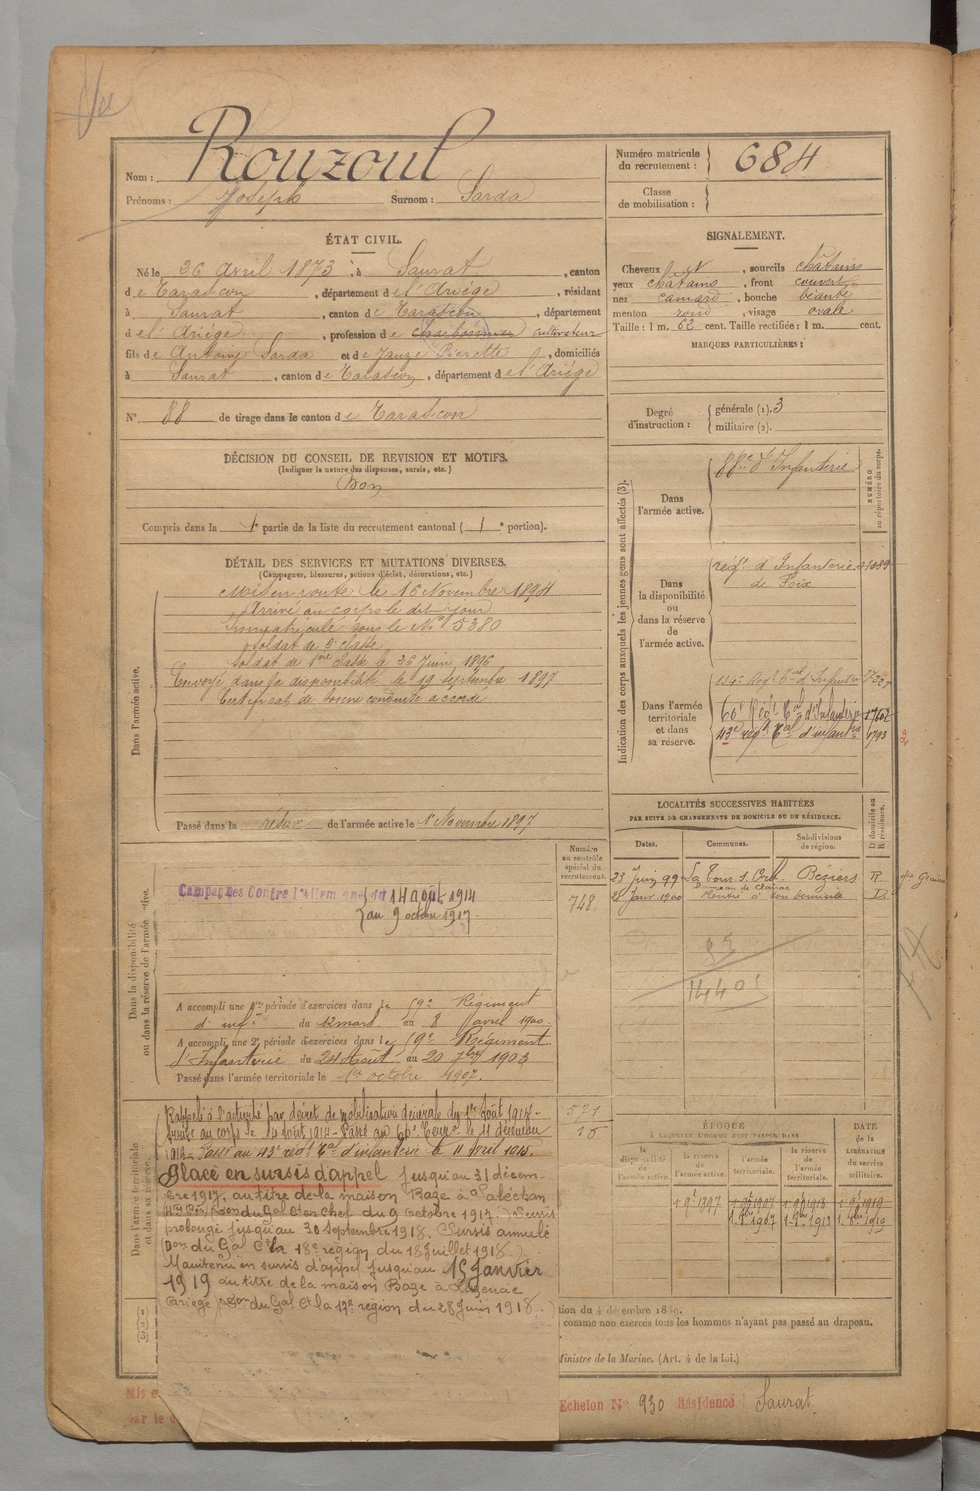 Vu
Nom : Rouzoul
Prénoms : Joseph Surnom : Sarda
Numéro matricule du recrutement : 684
Classe de mobilisation :
ÉTAT CIVIL.
Né le 26 avril 1873, à Saurat, canton
de Tarascon, département de l'Ariège, résidant
à Saurat, canton de Tarascon, département
de l'Ariège, profession de charbonnier cultivateur
fils de Antoine Sarda et de Jauze Pierrette, domiciliés
à Saurat, canton de Tarascon, département de l'Ariège
N° 88 de tirage dans le canton de Tarascon
SIGNALEMENT.
Cheveux et, sourcils châtains
yeux châtains, front couvert
nez camard, bouche béante
menton rond, visage ovale
Taille : 1 m. 62 cent. Taille rectifiée : 1 m. cent.
MARQUES PARTICULIÈRES :
Degré d'instruction : générale (1). 3
militaire (2).
DÉCISION DU CONSEIL DE REVISION ET MOTIFS.
(Indiquer la nature des dispenses, sursis, etc.)
Bon
Compris dans la 1e partie de la liste du recrutement cantonal ( 1e portion).
DÉTAIL DES SERVICES ET MUTATIONS DIVERSES.
(Campagnes, blessures, actions d'éclat, décorations, etc.)
Dans l'armée active.
Mis en route le 16 Novembre 1894
Arrivé au corps le dit jour
Immatriculé sous le N° 5380
Soldat de 2e classe
Soldat de 1re classe le 26 Juin 1896
Envoyé dans la disponibilité le 19 septembre 1897
Certificat de bonne conduite accordé
Passé dans la réserve de l'armée active le 1er Novembre 1897
Indication des corps auxquels les jeunes gens sont affectés (3).
NUMÉRO au répertoire du corps.
Dans l'armée active.
88e d'Infanterie
Dans la disponibilité ou dans la réserve de l'armée active.
régt d'Infanterie
de Foix
Dans l'armée territoriale et dans sa réserve.
134e Régt Tal d'Infanterie
66e Régt Tal d'Infanterie
43e régt Tal d'infantrie 1793
LOCALITÉS SUCCESSIVES HABITÉES
PAR SUITE DE CHANGEMENTS DE DOMICILE OU DE RÉSIDENCE.
D domicile ou R résidence.
Dates. Communes. Subdivisions de région.
23 Juin 99 La Tour s. Orb Béziers R
28 Janv 1900 Rentré à son domicile D
95
14401
Numéro au contrôle spécial du recrutement.
748
Dans la disponibilité ou dans la réserve de l'armée active.
Campagnes Contre l'Allemagne du 14 août 1914
au 9 octobre 1917
A accompli une 1re période d'exercices dans le 59e Régiment
d'infie du 12 mars au 8 avril 1900.
A accompli une 2e période d'exercices dans le 59e Régiment
d'Infanterie du 24 Août au 20 7bre 1903
Passé dans l'armée territoriale le 1er octobre 1907.
Dans l'armée territoriale et dans sa réserve.
Rappelé à l'activité par décret de mobilisation générale du 1er Août 1914 -
Arrivé au corps le 14 août 1914 - Passé au 66e Terr. le 11 décembre
1914 - Passé au 43e régt Tal d'infanterie le 11 Avril 1915.
Placé en sursis d'appel jusqu'au 31 décem-
bre 1917, au titre de la maison Baze à
du Gal Ct en Chef du 9 octobre 1917.) Sursis
prolongé jusqu'au 30 septembre 1918. Sursis annulé
(Don du Gal Ct la 18e région du 18 Juillet 1918.)
Maintenu en sursis d'appel jusqu'au 15 Janvier
1919 au titre de la maison Baze à Luzenac
Ariège Don du Gal Ct la 17e région du 28 Juin 1918.)
571
15
ÉPOQUE
À LAQUELLE L'HOMME DOIT PASSER DANS
DATE de la LIBÉRATION du service militaire.
la disponibilité de l'armée active.
la réserve de l'armée active.
l'armée territoriale.
la réserve de l'armée territoriale.
1 9bre 1897 1 9bre 1907 1 9bre 1913 1 9bre 1919
1 8bre 1907 1 8bre 1913 1 8bre 1919
tion du 4 décembre 1889.
comme non exercés tous les hommes n'ayant pas passé au drapeau.
Ministre de la Marine. (Art. 4 de la loi.)
Mis
par le
Echelon N° 930 Résidence Saurat